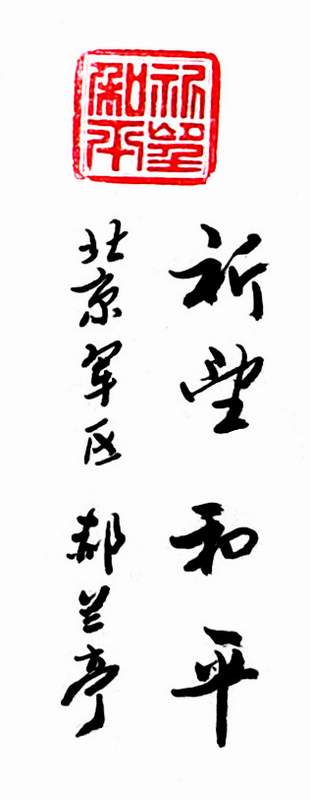 祈望和平
祈望和平
北京军区 郝兰亭